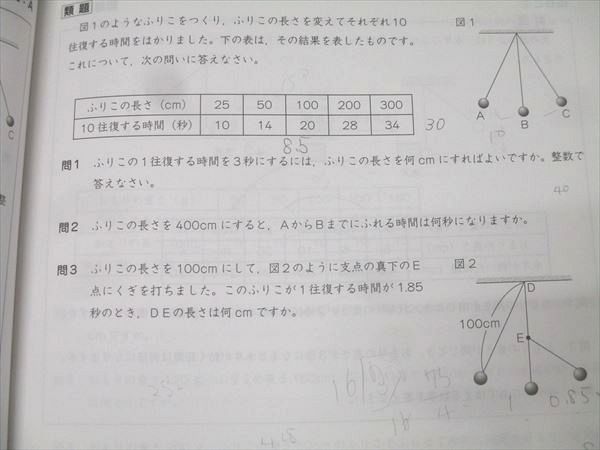 類題
図1のようなふりこをつくり，ふりこの長さを変えてそれぞれ10
往復する時間をはかりました。下の表は，その結果を表したものです。
これについて，次の問いに答えなさい。
図1
A
B
C
ふりこの長さ（cm） 25 50 100 200 300
10往復する時間（秒） 10 14 20 28 34
30
8.5
問1 ふりこの1往復する時間を3秒にするには，ふりこの長さを何cmにすればよいですか。整数で
答えなさい。
40
問2 ふりこの長さを400cmにすると，AからBまでにふれる時間は何秒になりますか。
問3 ふりこの長さを100cmにして，図2のように支点の真下のE
点にくぎを打ちました。このふりこが1往復する時間が1.85
秒のとき，DEの長さは何cmですか。
図2
D
100cm
E
75
16
4
1
0.85
C